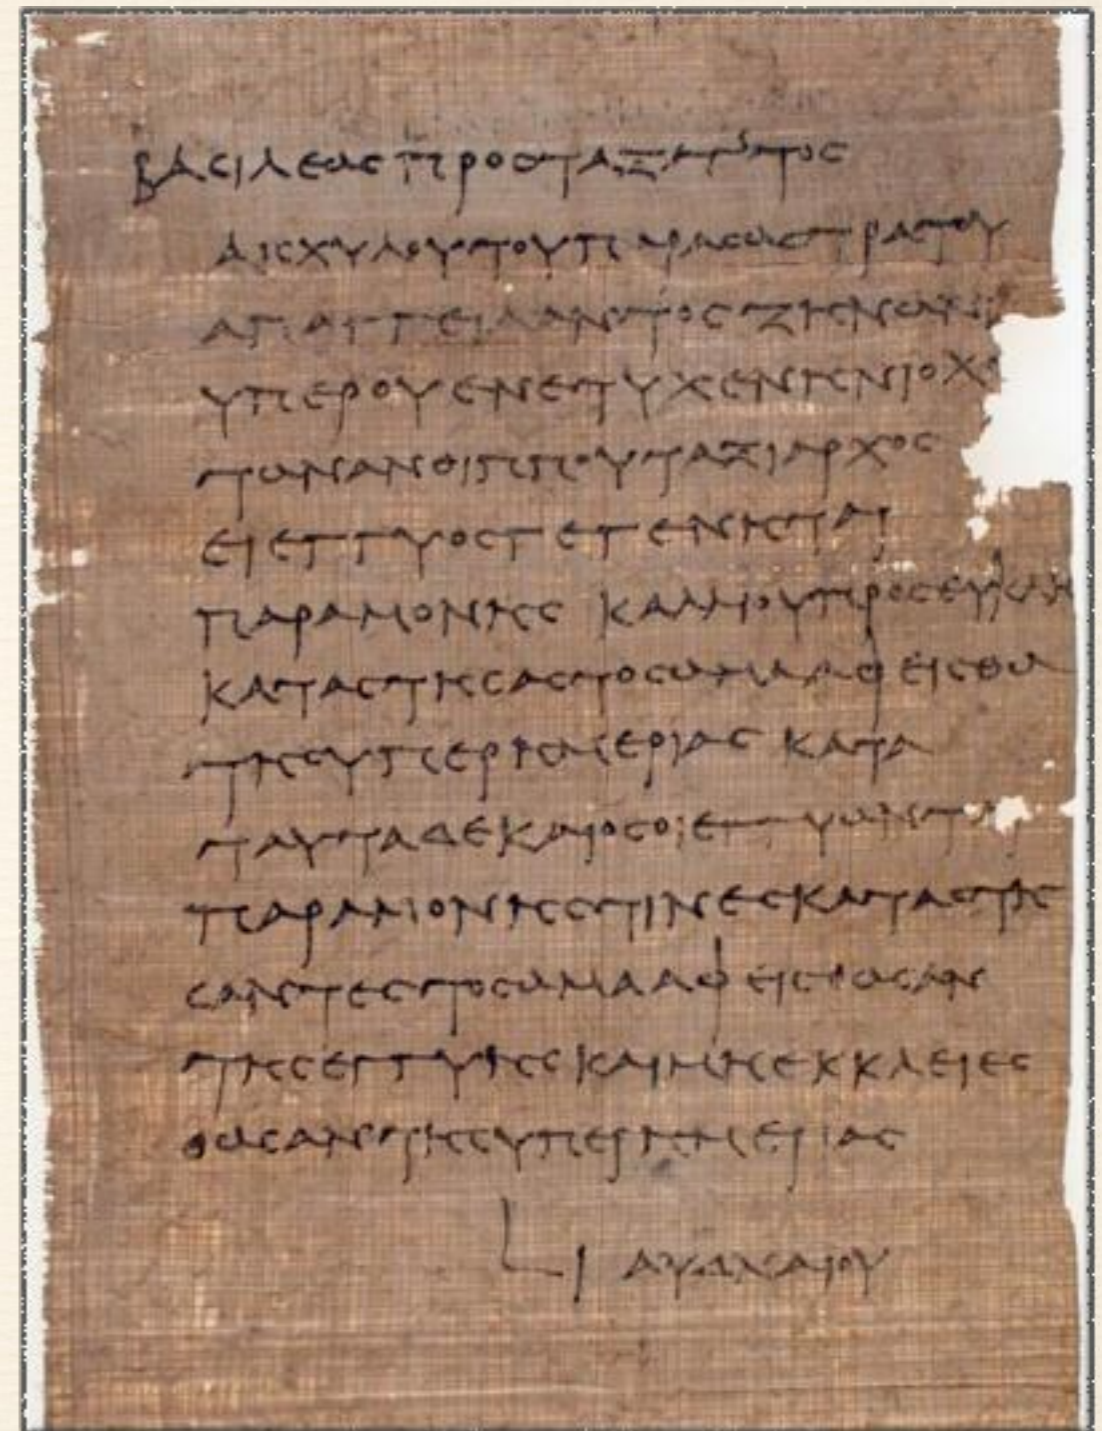 βασιλεως προσταξαντος
αισχυλου του
απαγγειλαντος ζηνων
υπερ ου ενετυχεν ηνιοχ
των ανθιππου ταξιαρχος
ει εγγυος γεγενηται
παραμονης καλ προς
καταστησας το σωμα αφεισθω
της υπερημεριας κατα
ταυτα δε και οσοι εγγυωνται
παραμονης τινες καταστη
σαντες το σωμα αφεισθωσαν
της εγγυης και μη εκκλειες
θωσαν της υπερημεριας
L ι αυδναιου